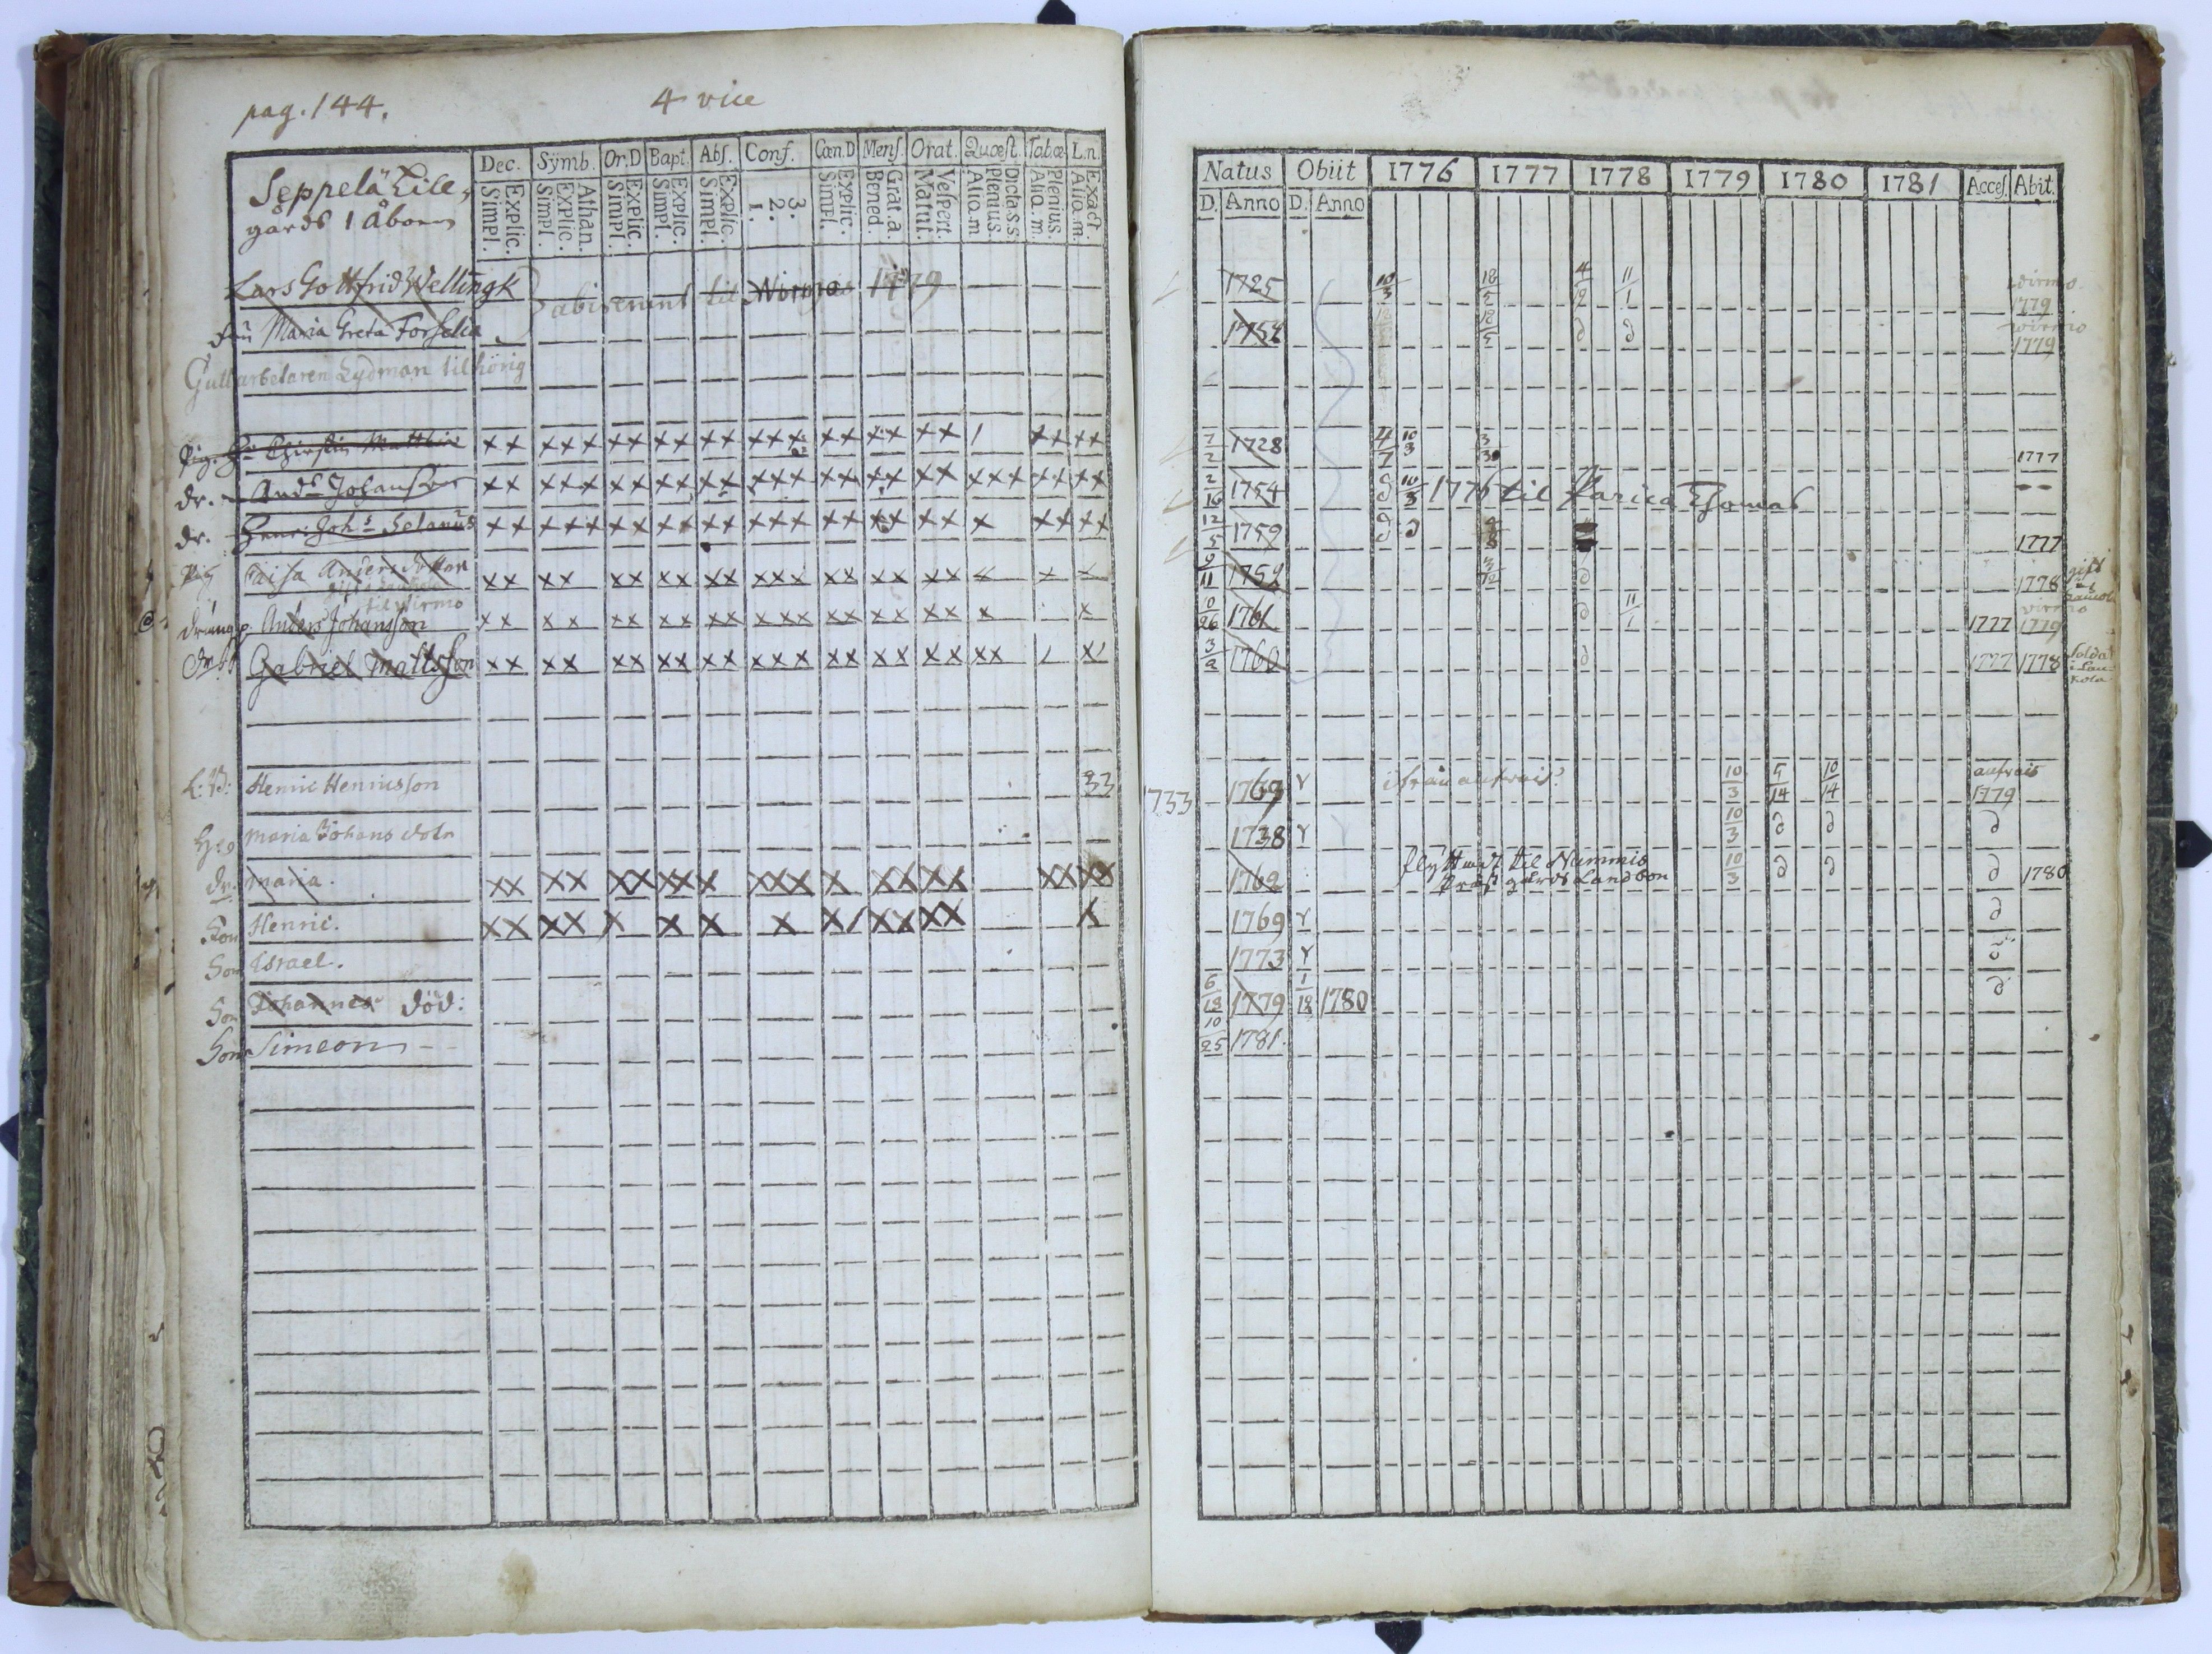 pag. 144.
4 vice
Seppelä
gårds 1 Åboen
Dec. Symb. Or.D Bapt. Abs. Conf. Cœn.D Mens. Orat. Quæst. Tab.œ L.n.
Explic. Simpl. Athan. Explic. Simpl. Explic. Simpl. Explic. Simpl. Explic. Simpl. 3. 2. 1. Explic. Simpl. Grat. a. Bened. Vespert. Matut. Dicta s.s. Plenius. Aliq.m. Plenius. Aliq.m. Exact. Aliq.m.
Natus Obiit 1776 1777 1778 1779 1780 1781 Acces. Abit.
D. Anno D. Anno
Lars Gottfrid Wellingk abierunt til Wirmo 1779 1725 10/3 18/5 4/2 11/1 wirmo 1779
Fru Maria Greta Forselia 18/5 ∂ ∂ wirmo 1779
Gullarbetaren Lydman tilhörig
Pig. xx xxx xx xx xx xxx xx xx xx 1 xx xx 7/2 1728 4/7 10/3 1777
dr. And.s Johansson xx xxx xx xx xx xxx xx xx xx xxx xx xx 2/16 1754 ∂ 10/3 1776 til Parica Thomas
dr. Joh.s xx xxx xx xx xx xxx xx xx xx x xx xx 12/5 1759 ∂ ∂ 1777
Pig Caisa Andersdotter xx xx xx xx xx xxx xx xx xx x x 9/11 3/12 ∂ 1778 gift
til wirmo
dräng Anders Johansson xx xx xx xx xx xxx xx xx xx x x 1761 ∂ 11/1 1777 wirmo 1779
Gabriel Mattsson xx xx xx xx xx xxx xx xx xx xx 1760 ∂ 1777 1778 Soldat
Henric Henricsson 33 1733 1769 ifrån aufrais 10/3 5/14 10/14 aufrais 1779
Maria Johans dotr 1738 10/3 ∂ ∂ ∂
Maria. xx xx xx xx x xxx x xx xx xx xx 1762 flyttad til Nummis 10/3 ∂ ∂ ∂ 1780
Prästgårds Landbon
Son Henric. xx xx x x x x x xx xx x 1769 ∂
Son Israel. 1773
Son Johannes död: 6/18 1779 1/18 1780 ∂
Son Simeon 10/25 1781.